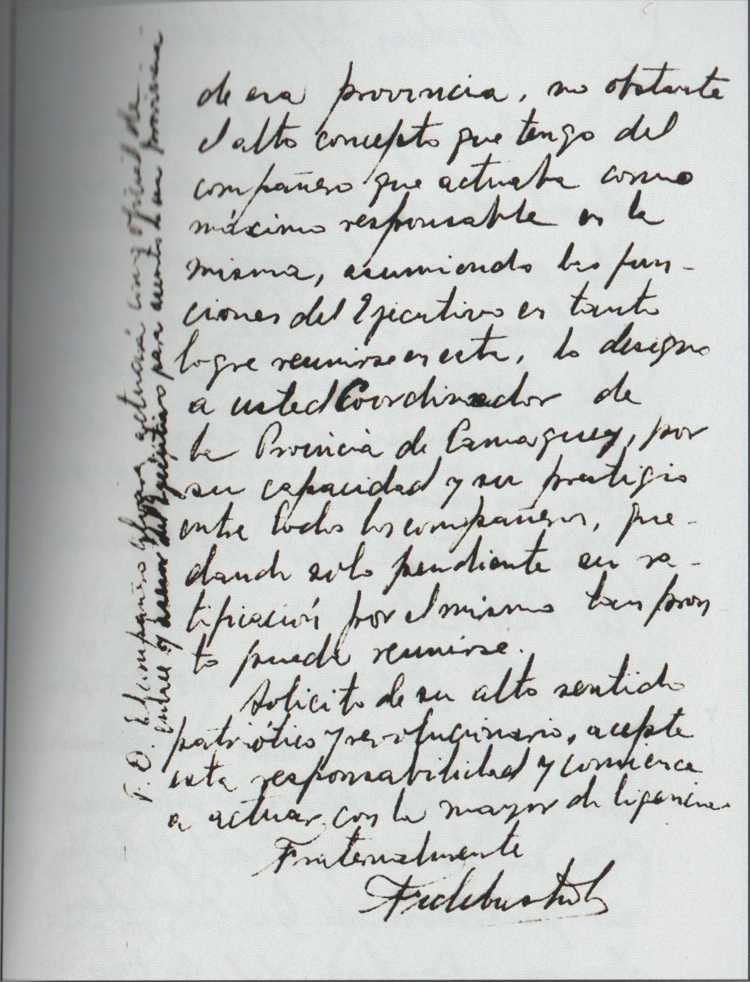 de esa provincia, no obstante
el alto concepto que tengo del
compañero que actuaba como
máximo responsable en la
misma, asumiendo las fun-
ciones del Ejecutivo en tanto
logre reunirse este, lo designo
a usted Coordinador de
la Provincia de Camaguey, por
su capacidad y su prestigio
entre todos los compañeros, que-
dando solo pendiente su ra-
tificación por el mismo tan pron
to pueda reunirse.
Solicito de su alto sentido
patriótico y revolucionario, acepte
esta responsabilidad y comience
a actuar con la mayor diligencia.
Fraternalmente
Fidel Castro
P.D. El compañero actuará como oficial de
enlace y asesor del Ejecutivo para asuntos de esa provincia